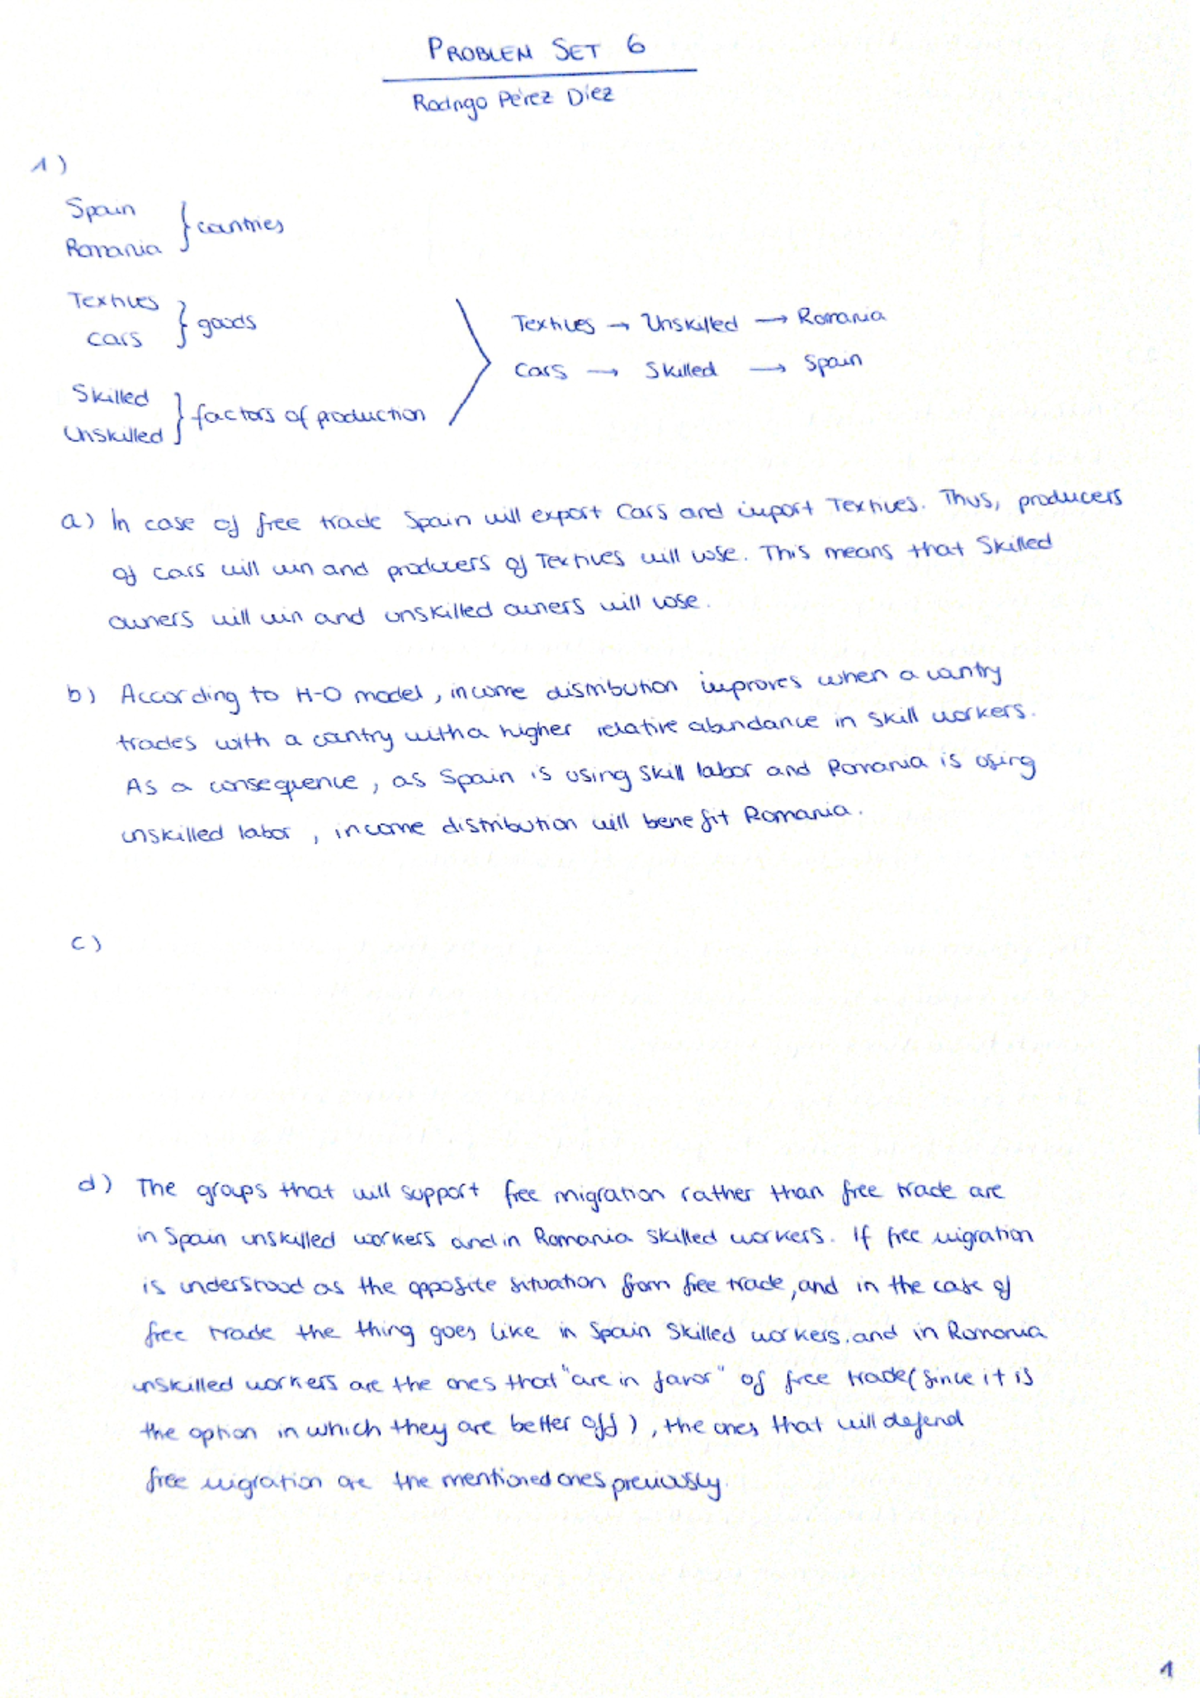 PROBLEM SET 6
Rodrigo Pérez Díez
1)
Spain
Romania } countries
Textiles
Cars } goods
Skilled
Unskilled } factors of production
Textiles → Unskilled → Romania
Cars → Skilled → Spain
a) In case of free trade Spain will export Cars and import Textiles. Thus, producers
of cars will win and producers of Textiles will lose. This means that Skilled
owners will win and unskilled owners will lose.
b) According to H-O model, income distribution improves when a country
trades with a country with a higher relative abundance in skill workers.
As a consequence, as Spain is using skill labor and Romania is using
unskilled labor, income distribution will benefit Romania.
c)
d) The groups that will support free migration rather than free trade are
in Spain unskilled workers and in Romania skilled workers. If free migration
is understood as the opposite situation from free trade, and in the case of
free trade the thing goes like in Spain Skilled workers, and in Romania
unskilled workers are the ones that "are in favor" of free trade (since it is
the option in which they are better off), the ones that will defend
free migration are the mentioned ones previously.
1